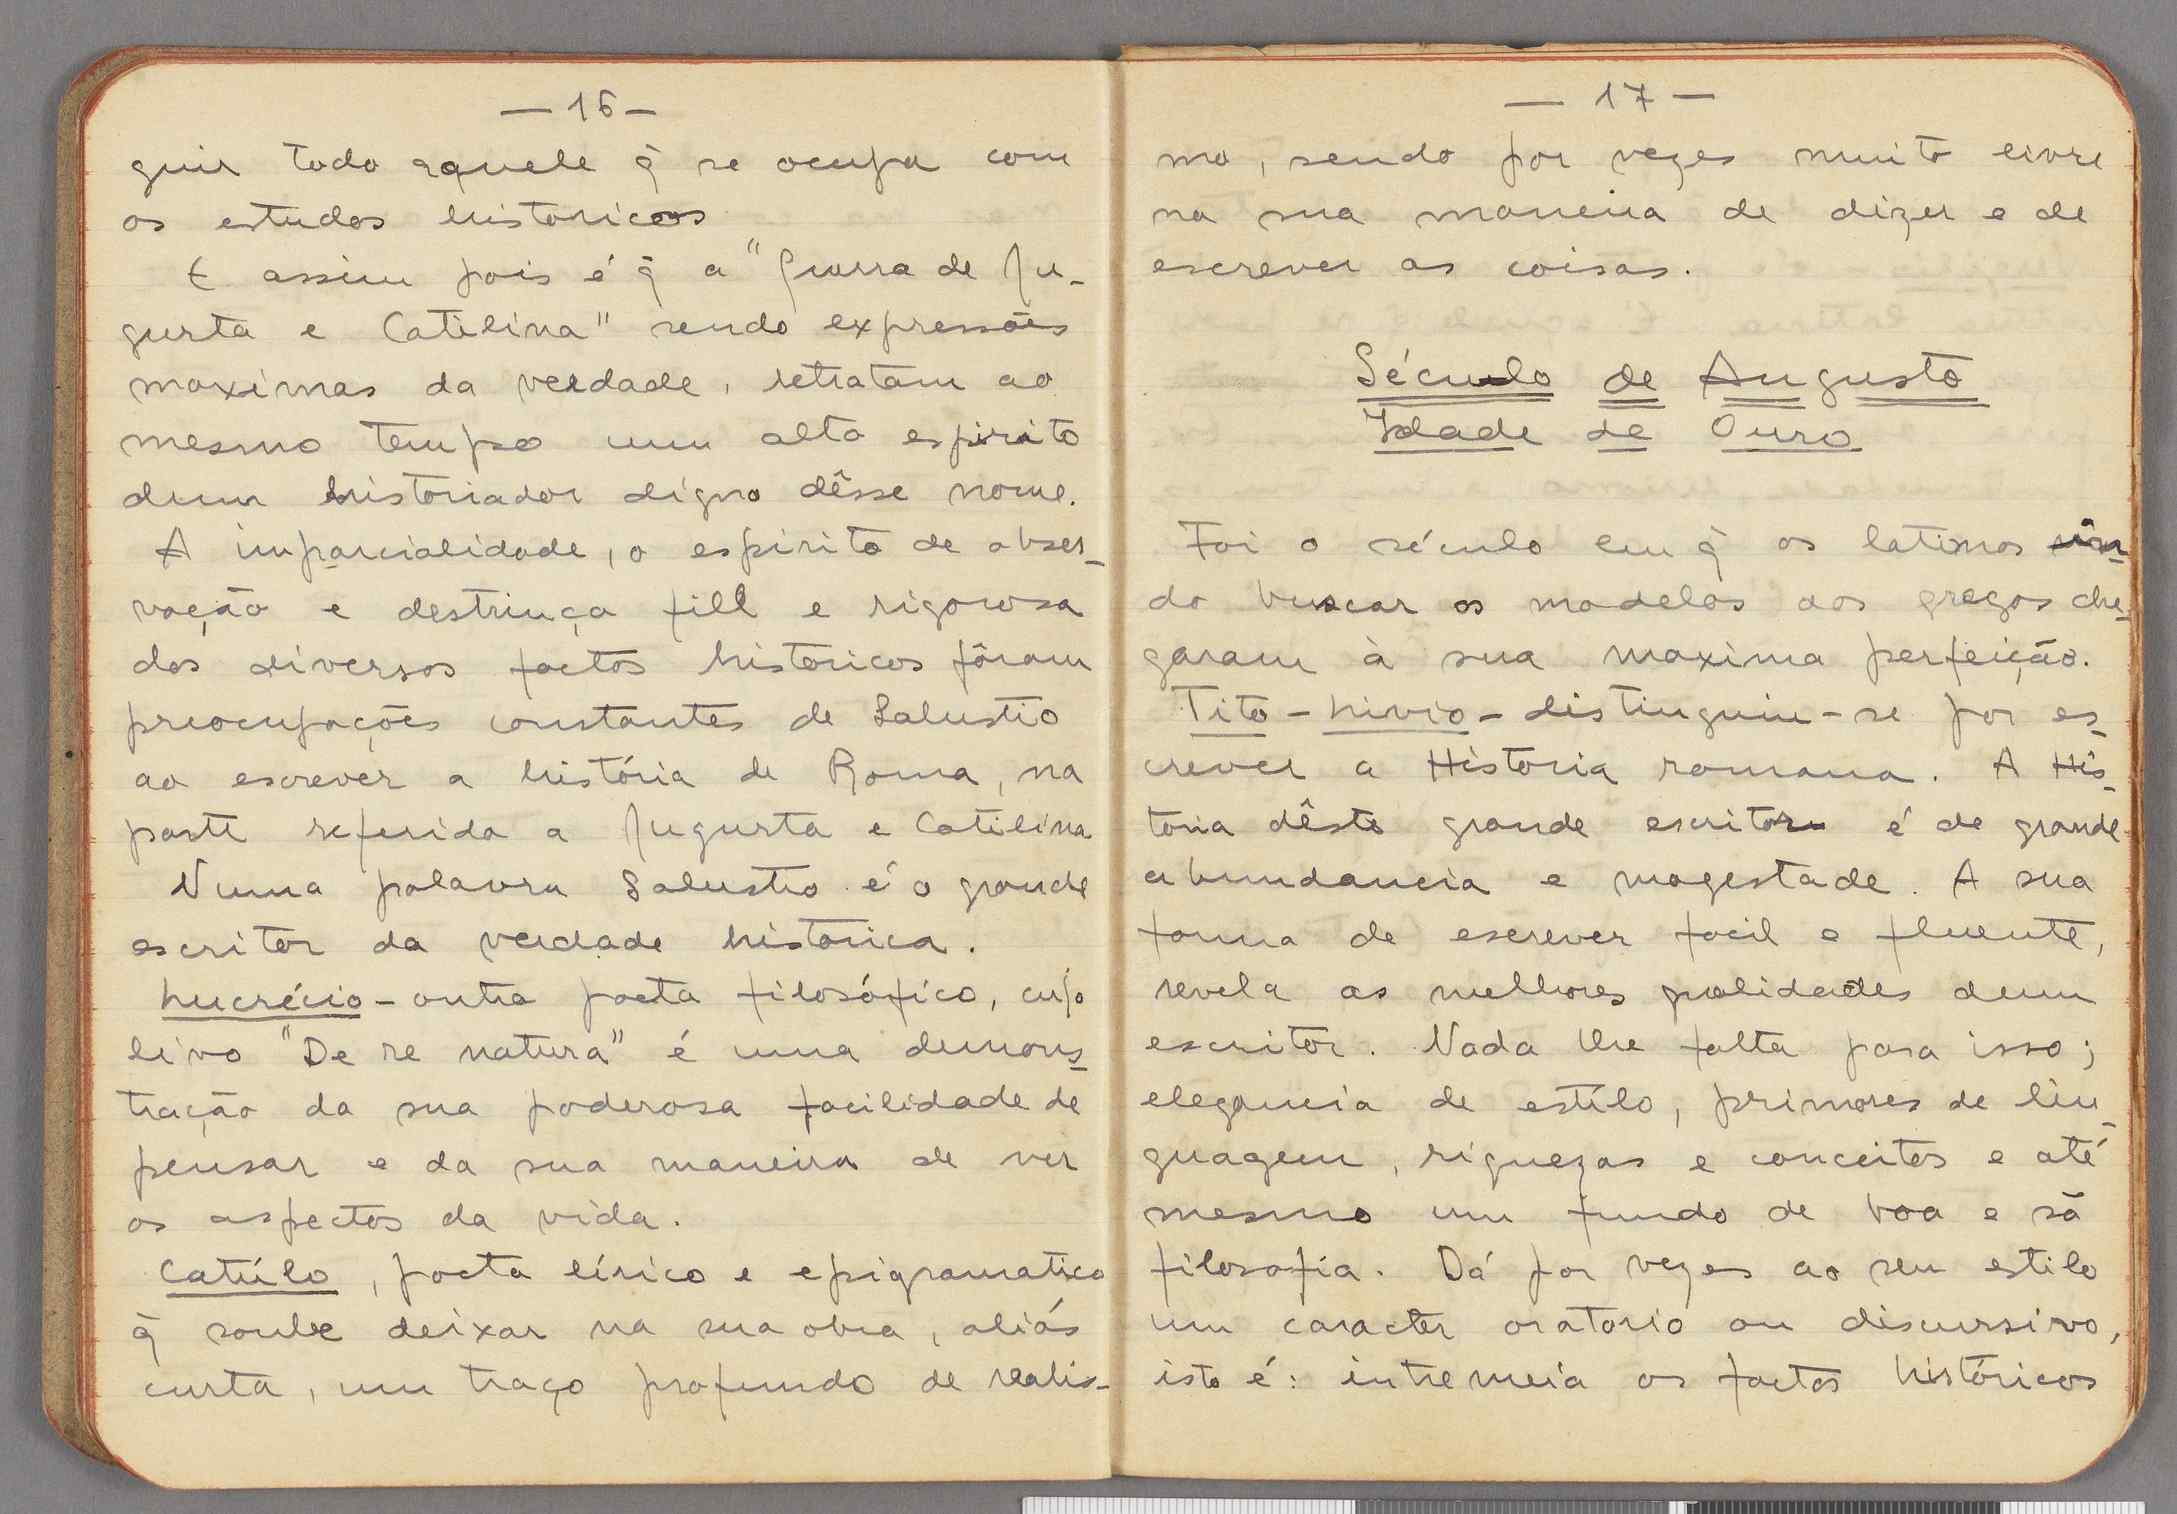 — 16 —
guir todo aquele q̃ se ocupa com
os estudos historicos
E assim pois é q̃ a "Guerra de Ju-
gurta e Catilina" sendo expressões
maximas da verdade, retratam ao
mesmo tempo um alto espirito
dum historiador digno dêsse nome.
A imparcialidade, o espirito de obser-
vação e destrinça fill e rigorosa
dos diversos factos historicos fôram
preocupações constantes de Salustio
ao escrever a história de Roma, na
parte referida a Jugurta e Catilina
Numa palavra Salustio é o grande
escritor da verdade historica.
Lucrécio - outro poeta filosófico, cujo
livo "De re natura" é uma demons-
tração da sua poderosa facilidade de
pensar e da sua maneira de ver
os aspectos da vida.
Catúlo, poeta lírico e epigramatico
q̃ soube deixar na sua obra, aliás
curta, um traço profundo de realis-
— 17 —
mo, sendo por vezes muito livre
na sua maneira de dizer e de
escrever as coisas.
Século de Augusto
Idade de Ouro
Foi o século em q̃ os latinos vin-
do buscar os modelos aos gregos che-
garam à sua maxima perfeição.
Tito-Livio - distinguiu-se por es-
crever a Historia romana. A His-
toria dêste grande escritor é de grande
abundancia e magestade. A sua
forma de escrever facil e fluente,
revela as melhores qualidades dum
escritor. Nada lhe falta para isso;
elegancia de estílo, primores de lin-
guagem, riquezas e conceitos e até
mesmo um fundo de boa e sã
filosofia. Dá por vezes ao seu estilo
um caracter oratorio ou discursivo,
isto é: intremeia os factos históricos